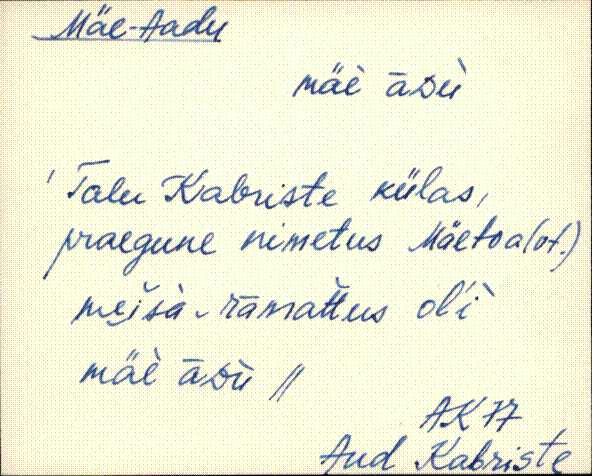 Mäe-Aadu
mäè āDù
' Talu Kabriste külas,
praegune nimetus Mäetoa (of.)
mẹi̯sà-rāmattus ol'ì
mäè āDù //
AK 77
Aud Kabriste